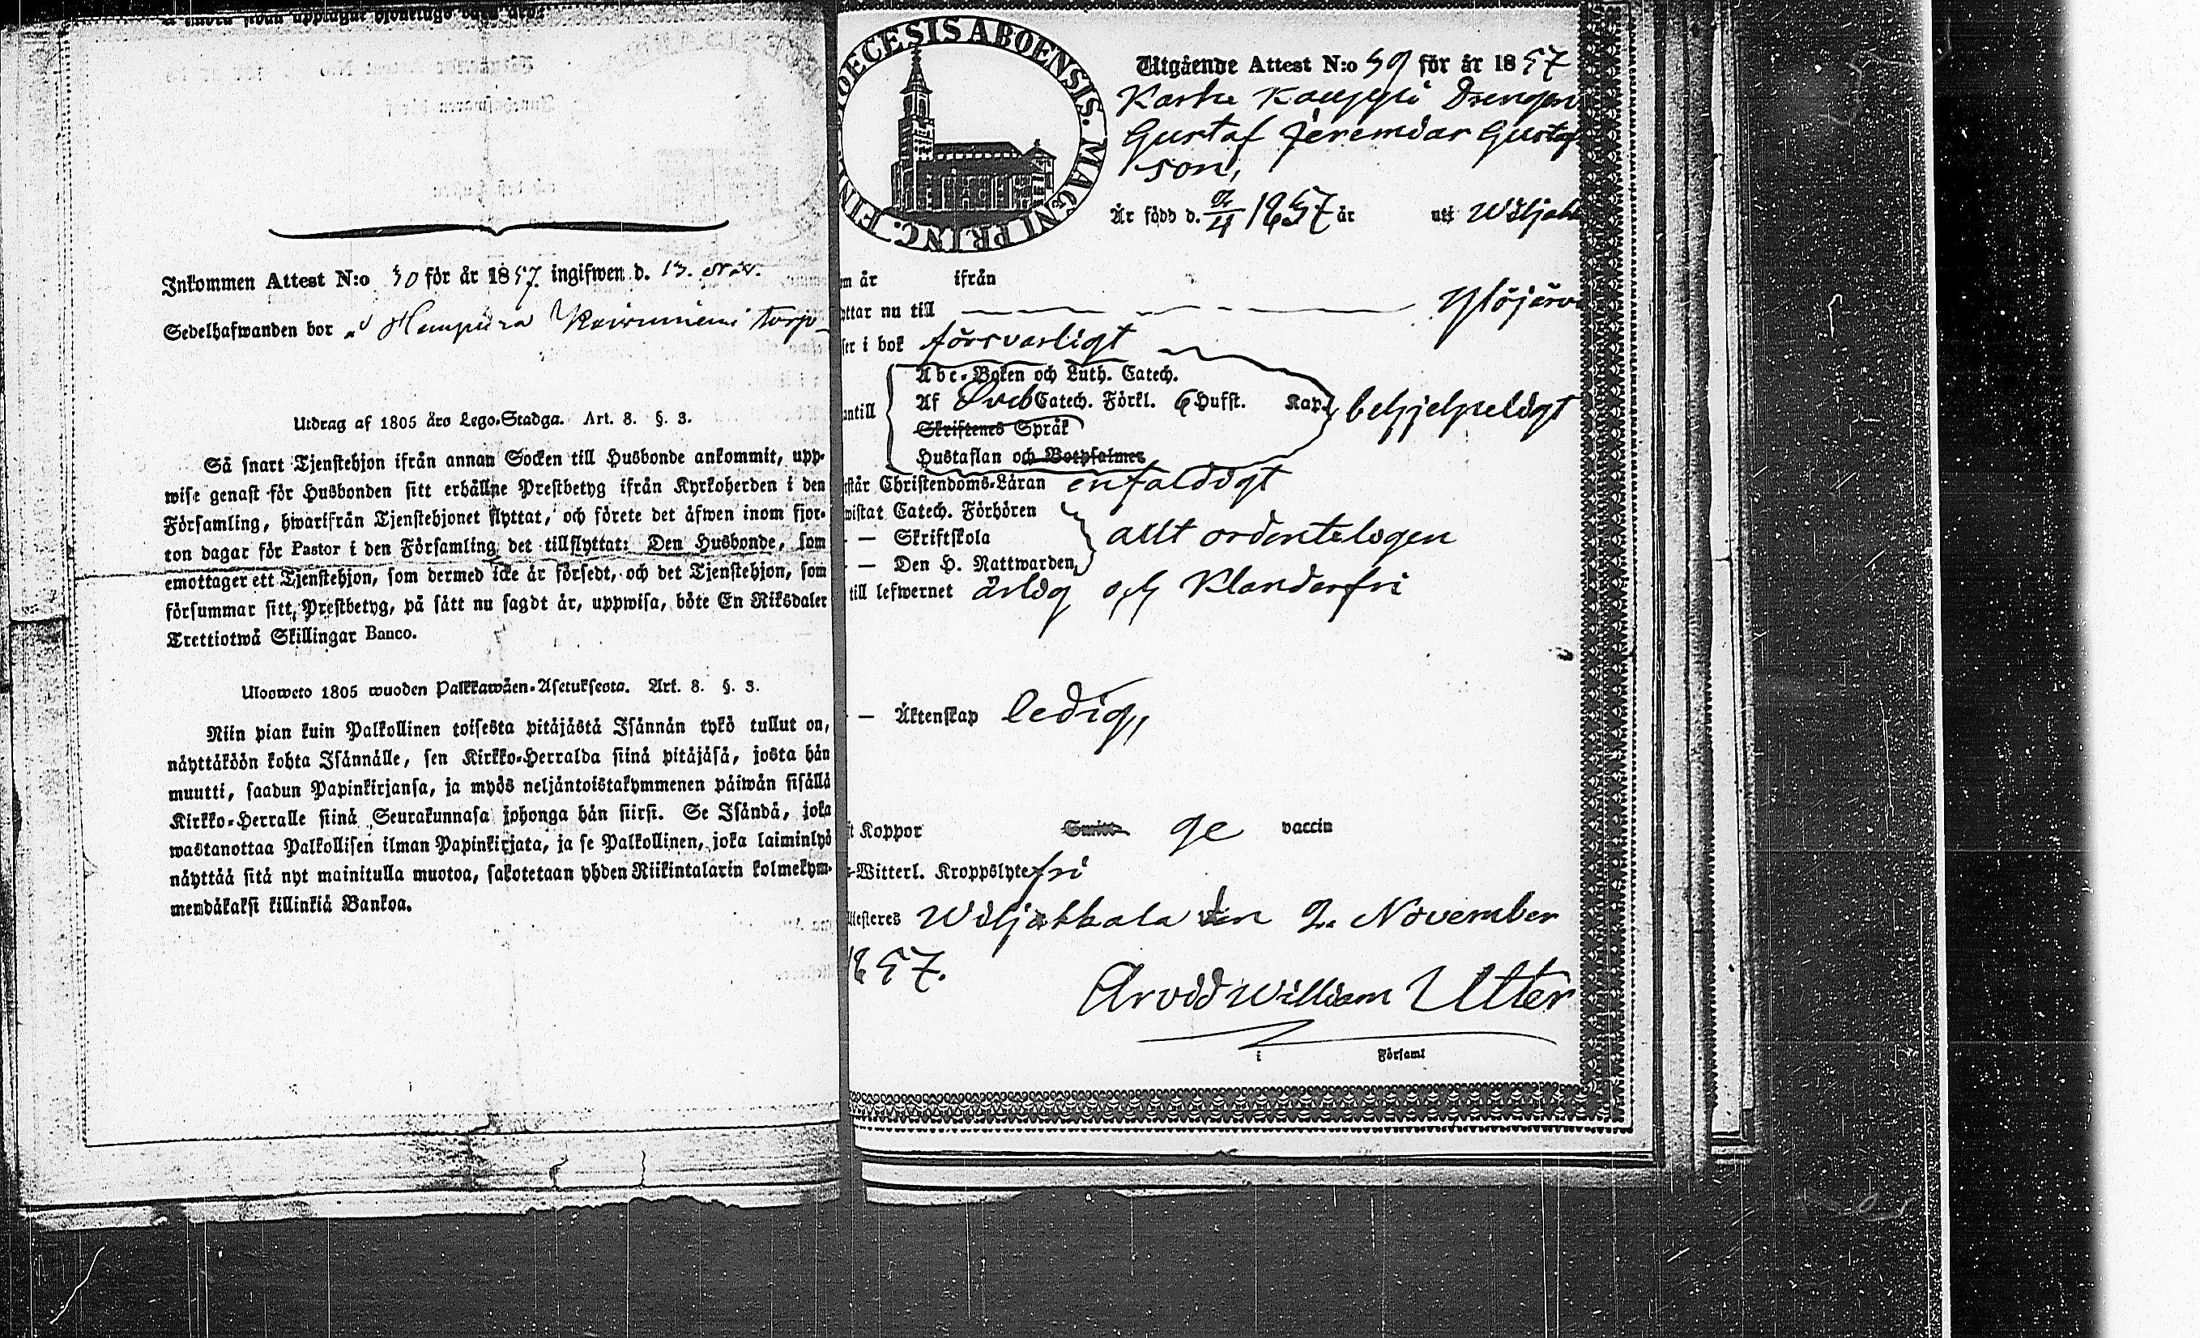 Inkommen Attest N:o 30 för år 1857 ingifwen d. 13. Nov.
Sedelhafwanden bor torp
Utdrag af 1805 års Lego-Stadga. Art. 8. §. 3.
Så snart Tjenstehjon ifrån annan Socken till Husbonde ankommit, upp-
wise genast för Husbonden sitt erhållne Prestbetyg ifrån Kyrkoherden i den
Församling, hwarifrån Tjenstehjonet flyttat, och förete det äfwen inom fjor-
ton dagar för Pastor i den Församling det tillflyttat: Den Husbonde, som
emottager ett Tjenstehjon, som dermed icke är försedt, och det Tjenstehjon, som
försummar sitt Prestbetyg, på sätt nu sagdt är, uppwisa, böte En Riksdaler
Trettiotwå Skillingar Banco.
Ulosweto 1805 wuoden Palkkawäen-Asetuksesta. Art. 8. §. 3.
Niin pian kuin Palkollinen toisesta pitäjästä Isännän tykö tullut on,
näyttäköön kohta Isännälle, sen Kirkko-Herralda siinä pitäjäsä, josta hän
muutti, saadun Papinkirjansa, ja myös neljäntoistakymmenen päiwän sisällä
Kirkko-Herralle siinä Seurakunnasa johonga hän siirsi. Se Isändä, joka
wastanottaa Palkollisen ilman Papinkirjata, ja se Palkollinen, joka laiminlyö
näyttää sitä nyt mainitulla muotoa, sakotetaan yhden Riikintalarin kolmekym-
mendäkaksi killinkiä Bankoa.
DIOECESIS ABOENSIS. MAGNI PRINC. FIN
Utgående Attest N:o 39 för år 1857
Karhe Kauppi Drengen
Gustaf Jeremias Gustaf
son,
Är född d. 1857 år uti Wiljak
m år ifrån
ttar nu till Ylöjärvi
ser i bok försvarligt
Abc-Boken och Luth. Catech.
antill Af Sveb Catech. Förkl. 6 Hufst. Kap. behjelpeligt
Skriftenes Språk
Hustaflan och Botpsalmer
står Christendoms-Läran enfaldigt
wistat Catech. Förhören
— Skriftskola allt ordenteligen
— Den H. Nattwarden
till lefwernet ärlig och klanderfri
— Äktenskap ledig,
t Koppor ge vaccin
-Witterl. Kroppslyte fri
ttesteres Wiljakkala den 2. November
1857.
Arvid William Utter
i Församl